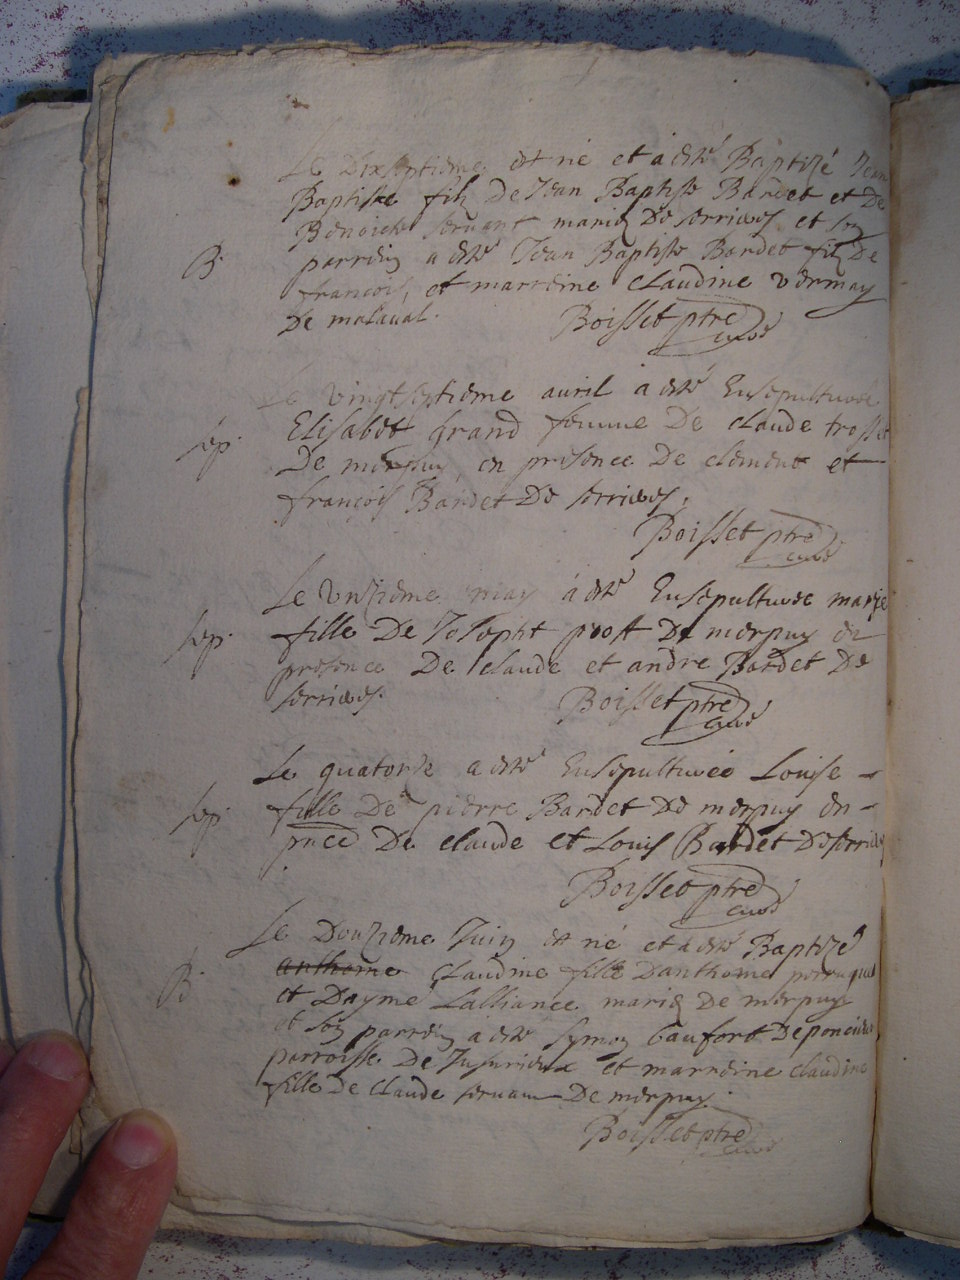 Le Dixseptieme est né et a esté Baptizé Jean
Baptiste filz De Jean Baptiste Bardet et De
Benoiste servant mariez De serrieres et son
B. parrein a esté Jean Baptiste Bardet filz De
françois, et marreine claudine vermay
De malaval. Boisset ptre
curé
Le vingtseptieme avril a esté Ensepulturée
sep. Elisabet grand femme De claude trosset
De merpuy en presence De clement et
françois Bardet De serrieres.
Boisset ptre
curé
Le unzieme may a esté Ensepulturée marie
sep. fille De Josepht De merpuy en
presence De claude et andre Bardet De
serrieres. Boisset ptre
curé
Le quatorse a esté Ensepulturée Louise
sep. fille De pierre Bardet De merpuy en
pnce De claude et Louis Bardet De serrieres
Boisset ptre
curé
Le Douzieme Juin est né et a esté Baptizé
B. anthome claudine fille Danthome
et Dayme Lalliance mariez De merpuy
et son parrein a esté symon Caufort De
parroisse De Jusurieux et marreine claudine
fille De claude servant De merpuy.
Boisset ptre
curé